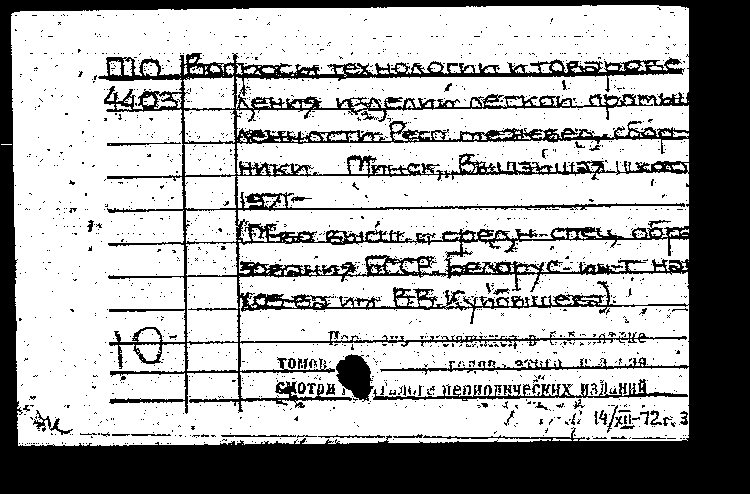 ПО Вопросы технологии и товарове
4403 дения изделий легкой промыш
ленности. Респ. межвед. сбор-
ники. Минск, "Вышэйшая школ
1971-
(М-во высш. и средн. спец. обра
зования БССР. Белорус. ин-т. нар.
хоз-ва им. В.В. Куйбышева)
10
Перечень имеющихся в библиотеке
томов, годов этого
смотри каталоге периодических изданий
14/XII-72 г. З